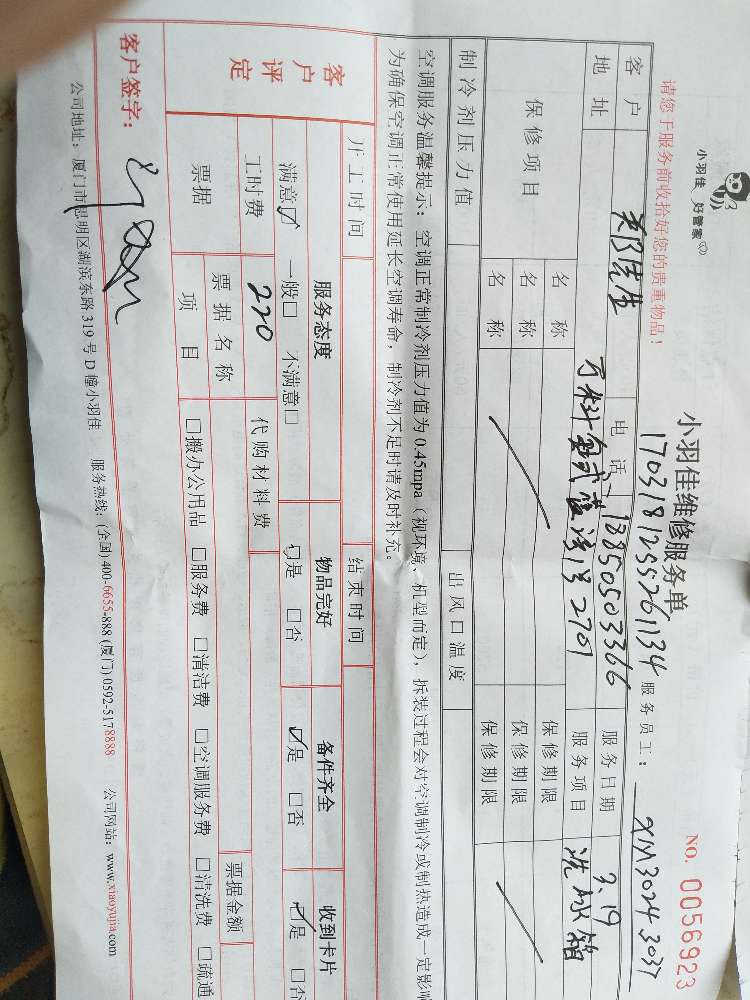 小羽佳 好管家
请您于服务前收拾好您的贵重物品!
小羽佳维修服务单
NO. 0056923
1703181255261134 服务员工: XM3024.3037
客户 郑先生 电话 18850503366 服务日期 3.19
地址 万科金域蓝湾 2701 服务项目 洗冰箱
保修项目 名称 保修期限
名称 保修期限
名称 保修期限
制冷剂压力值 出风口温度
空调服务温馨提示: 空调正常制冷剂压力值为0.45mpa(视环境、机型而定), 拆装过程会对空调制冷或制热造成一定影响
为确保空调正常使用延长空调寿命, 制冷剂不足时请及时补充。
开工时间 结束时间
客户评定 服务态度 物品完好 备件齐全 收到卡片
满意☑ 一般□ 不满意□ □是 □否 ☑是 □否 ☑是 □否
工时费 220 代购材料费
票据 票据名称 票据金额
项目 □搬办公用品 □服务费 □清洁费 □空调服务费 □清洗费 □疏通
客户签字:
公司地址: 厦门市思明区湖滨东路319号D幢小羽佳 服务热线: (全国)400-6655-888 (厦门)0592-5178888 公司网站: www.xiaoyujia.com